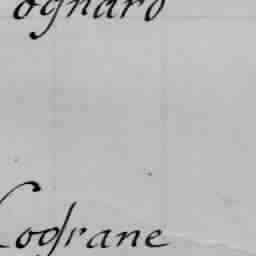 ognaro
Cograne